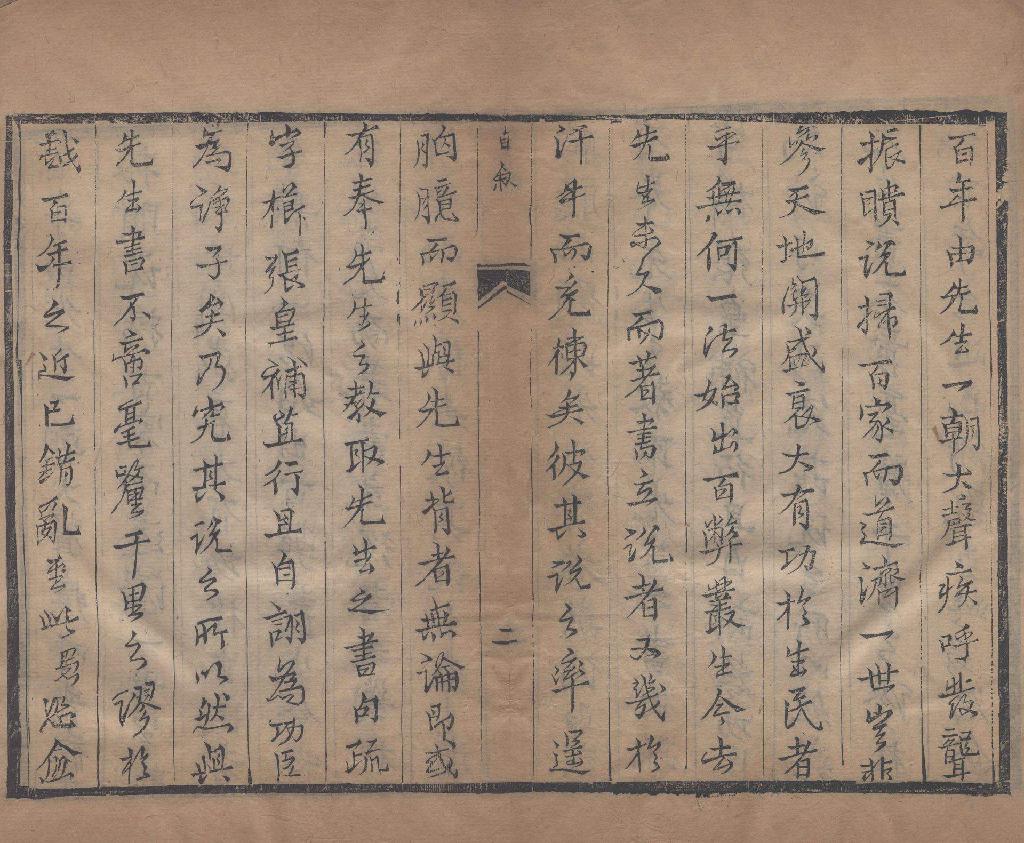 百年由先生一朝大聲疾呼發聾
振瞶说掃百家而道濟一世豈非
參天地關盛衰大有功於生民者
乎無何一法始出百弊叢生今去
先生未久而著書立说者又幾於
汗牛而充棟矣彼其说之率逞
胸臆而顯與先生背者無論即或
有奉先生之教取先生之書句疏
字櫛張皇補苴行且自詡為功臣
為諍子矣乃究其说之所以然與
先生書不啻毫釐千里之謬於
戲百年之近已錯亂至此愚恐愈
自叙
二